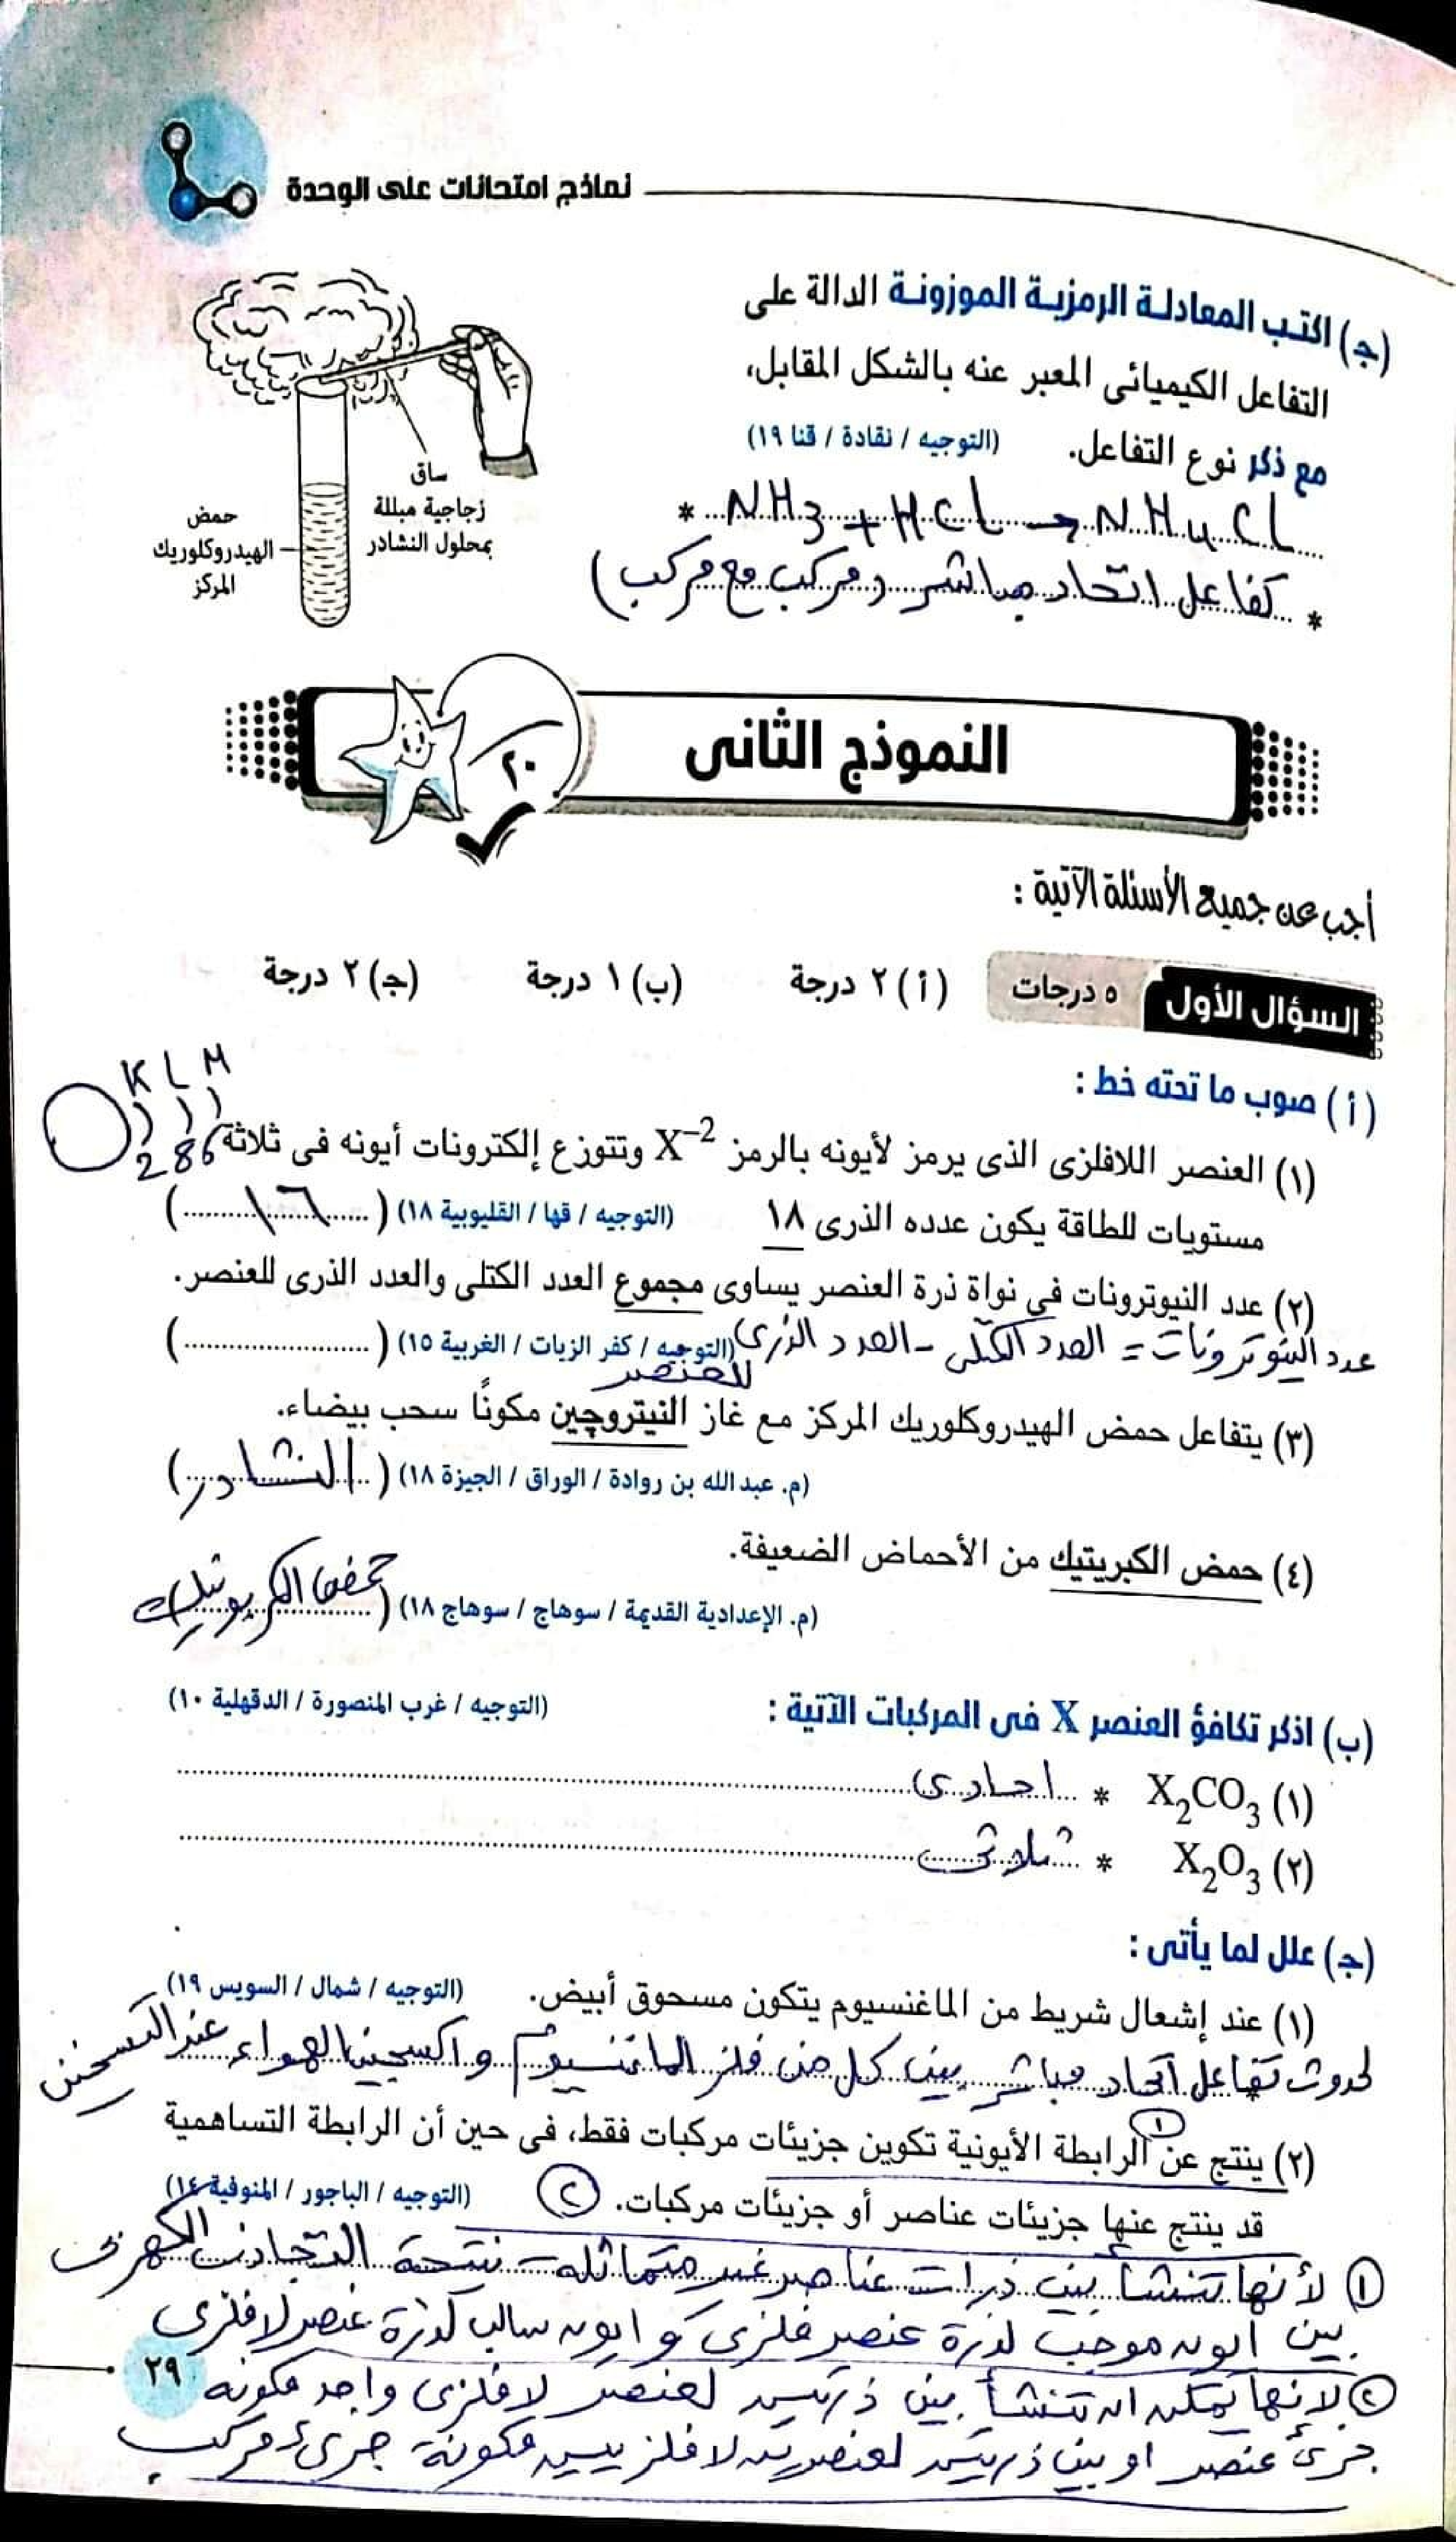 نماذج امتحانات على الوحدة
(جـ) اكتب المعادلة الرمزية الموزونة الدالة على
التفاعل الكيميائى المعبر عنه بالشكل المقابل،
مع ذكر نوع التفاعل. (التوجيه / نقادة / قنا ١٩)
* NH3 + HCl → NH4Cl
* تفاعل اتحاد مباشر (مركب مع مركب)
ساق
زجاجية مبللة
بمحلول النشادر
حمض
الهيدروكلوريك
المركز
النموذج الثانى
٢٠
أجب عن جميع الأسئلة الآتية :
السؤال الأول ٥ درجات (أ) ٢ درجة (ب) ١ درجة (جـ) ٢ درجة
(أ) صوب ما تحته خط :
K L M
2 8 6
(١) العنصر اللافلزى الذى يرمز لأيونه بالرمز X−2 وتتوزع إلكترونات أيونه فى ثلاثة
مستويات للطاقة يكون عدده الذرى ١٨ (التوجيه / قها / القليوبية ١٨) (١٦)
(٢) عدد النيوترونات في نواة ذرة العنصر يساوى مجموع العدد الكتلى والعدد الذرى للعنصر.
(التوجيه / كفر الزيات / الغربية ١٥) (..........)
عدد النيوترونات = العدد الكتلى - العدد الذرى
للعنصر
(٣) يتفاعل حمض الهيدروكلوريك المركز مع غاز النيتروچين مكونًا سحب بيضاء.
(م. عبد الله بن روادة / الوراق / الجيزة ١٨) (النشادر)
(٤) حمض الكبريتيك من الأحماض الضعيفة.
(م. الإعدادية القديمة / سوهاج / سوهاج ١٨) (حمض الكربونيك)
(ب) اذكر تكافؤ العنصر X فى المركبات الآتية : (التوجيه / غرب المنصورة / الدقهلية ١٠)
(١) X2CO3 * احادى
(٢) X2O3 * ثلاثى
(جـ) علل لما يأتى :
(١) عند إشعال شريط من الماغنسيوم يتكون مسحوق أبيض. (التوجيه / شمال / السويس ١٩)
لحدوث تفاعل اتحاد مباشر بين كل من فلز الماغنسيوم واكسجين الهواء عند التسخين
١
(٢) ينتج عن الرابطة الأيونية تكوين جزيئات مركبات فقط، فى حين أن الرابطة التساهمية
قد ينتج عنها جزيئات عناصر أو جزيئات مركبات. ٢ (التوجيه / الباجور / المنوفية ١٤)
١ لأنها تنشأ بين ذرات عناصر غير متماثلة نتيجة التجاذب الكهربى
بين ايون موجب لذرة عنصر فلزى و ايون سالب لذرة عنصر لافلزى
٢ لانها يمكن ان تنشأ بين ذرتين لعنصر لافلزى واحد مكونه
جزئ عنصر او بين ذرتين لعنصرين لافلزيين مكونة جزئ مركب
٢٩